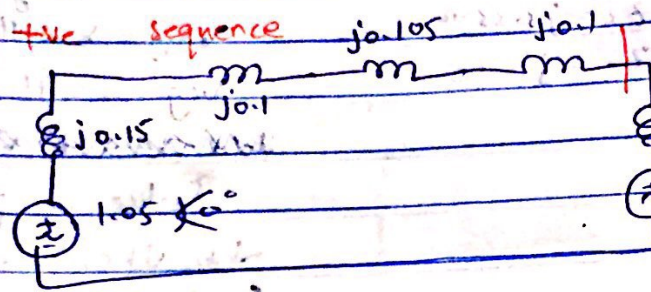 +ve sequence j0.105 j0.1
j0.1
j0.15
1.05 ∠0°